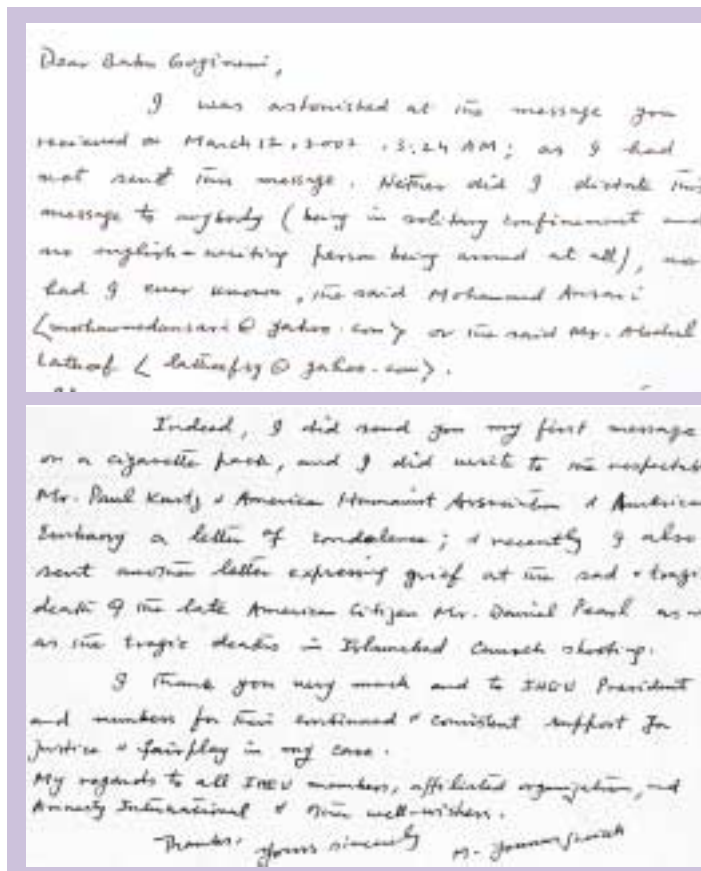 Dear Babu Gogineni,
I was astonished at the message you
recieved on March 12, 2002, 3.24 AM; as I had
not sent this message. Neither did I dictate this
message to anybody (being in solitary confinement and
no english-writing person being around at all), nor
had I ever known, the said Mohammed Ansari
<mohammedansari@yahoo.com> or the said Mr. Abdul
Lathoof <@yahoo.com>.
Indeed, I did send you my first message
on a cigarette pack, and I did write to the respectab
Mr. Paul Kurtz & American Humanist Association & American
Embassy a letter of condolence; & recently I also
sent another letter expressing grief at the sad & tragi
death of the late American Citizen Mr. Daniel Pearl as w
as the tragic deaths in Islamabad Church shooting.
I thank you very much and to IHEU President
and members for their continued & consistent support for
justice & fairplay in my case.
My regards to all IHEU members, affiliated organization, and
Amnesty International & other well-wishers.
Thanks. Yours sincerely M. Younus Shaikh